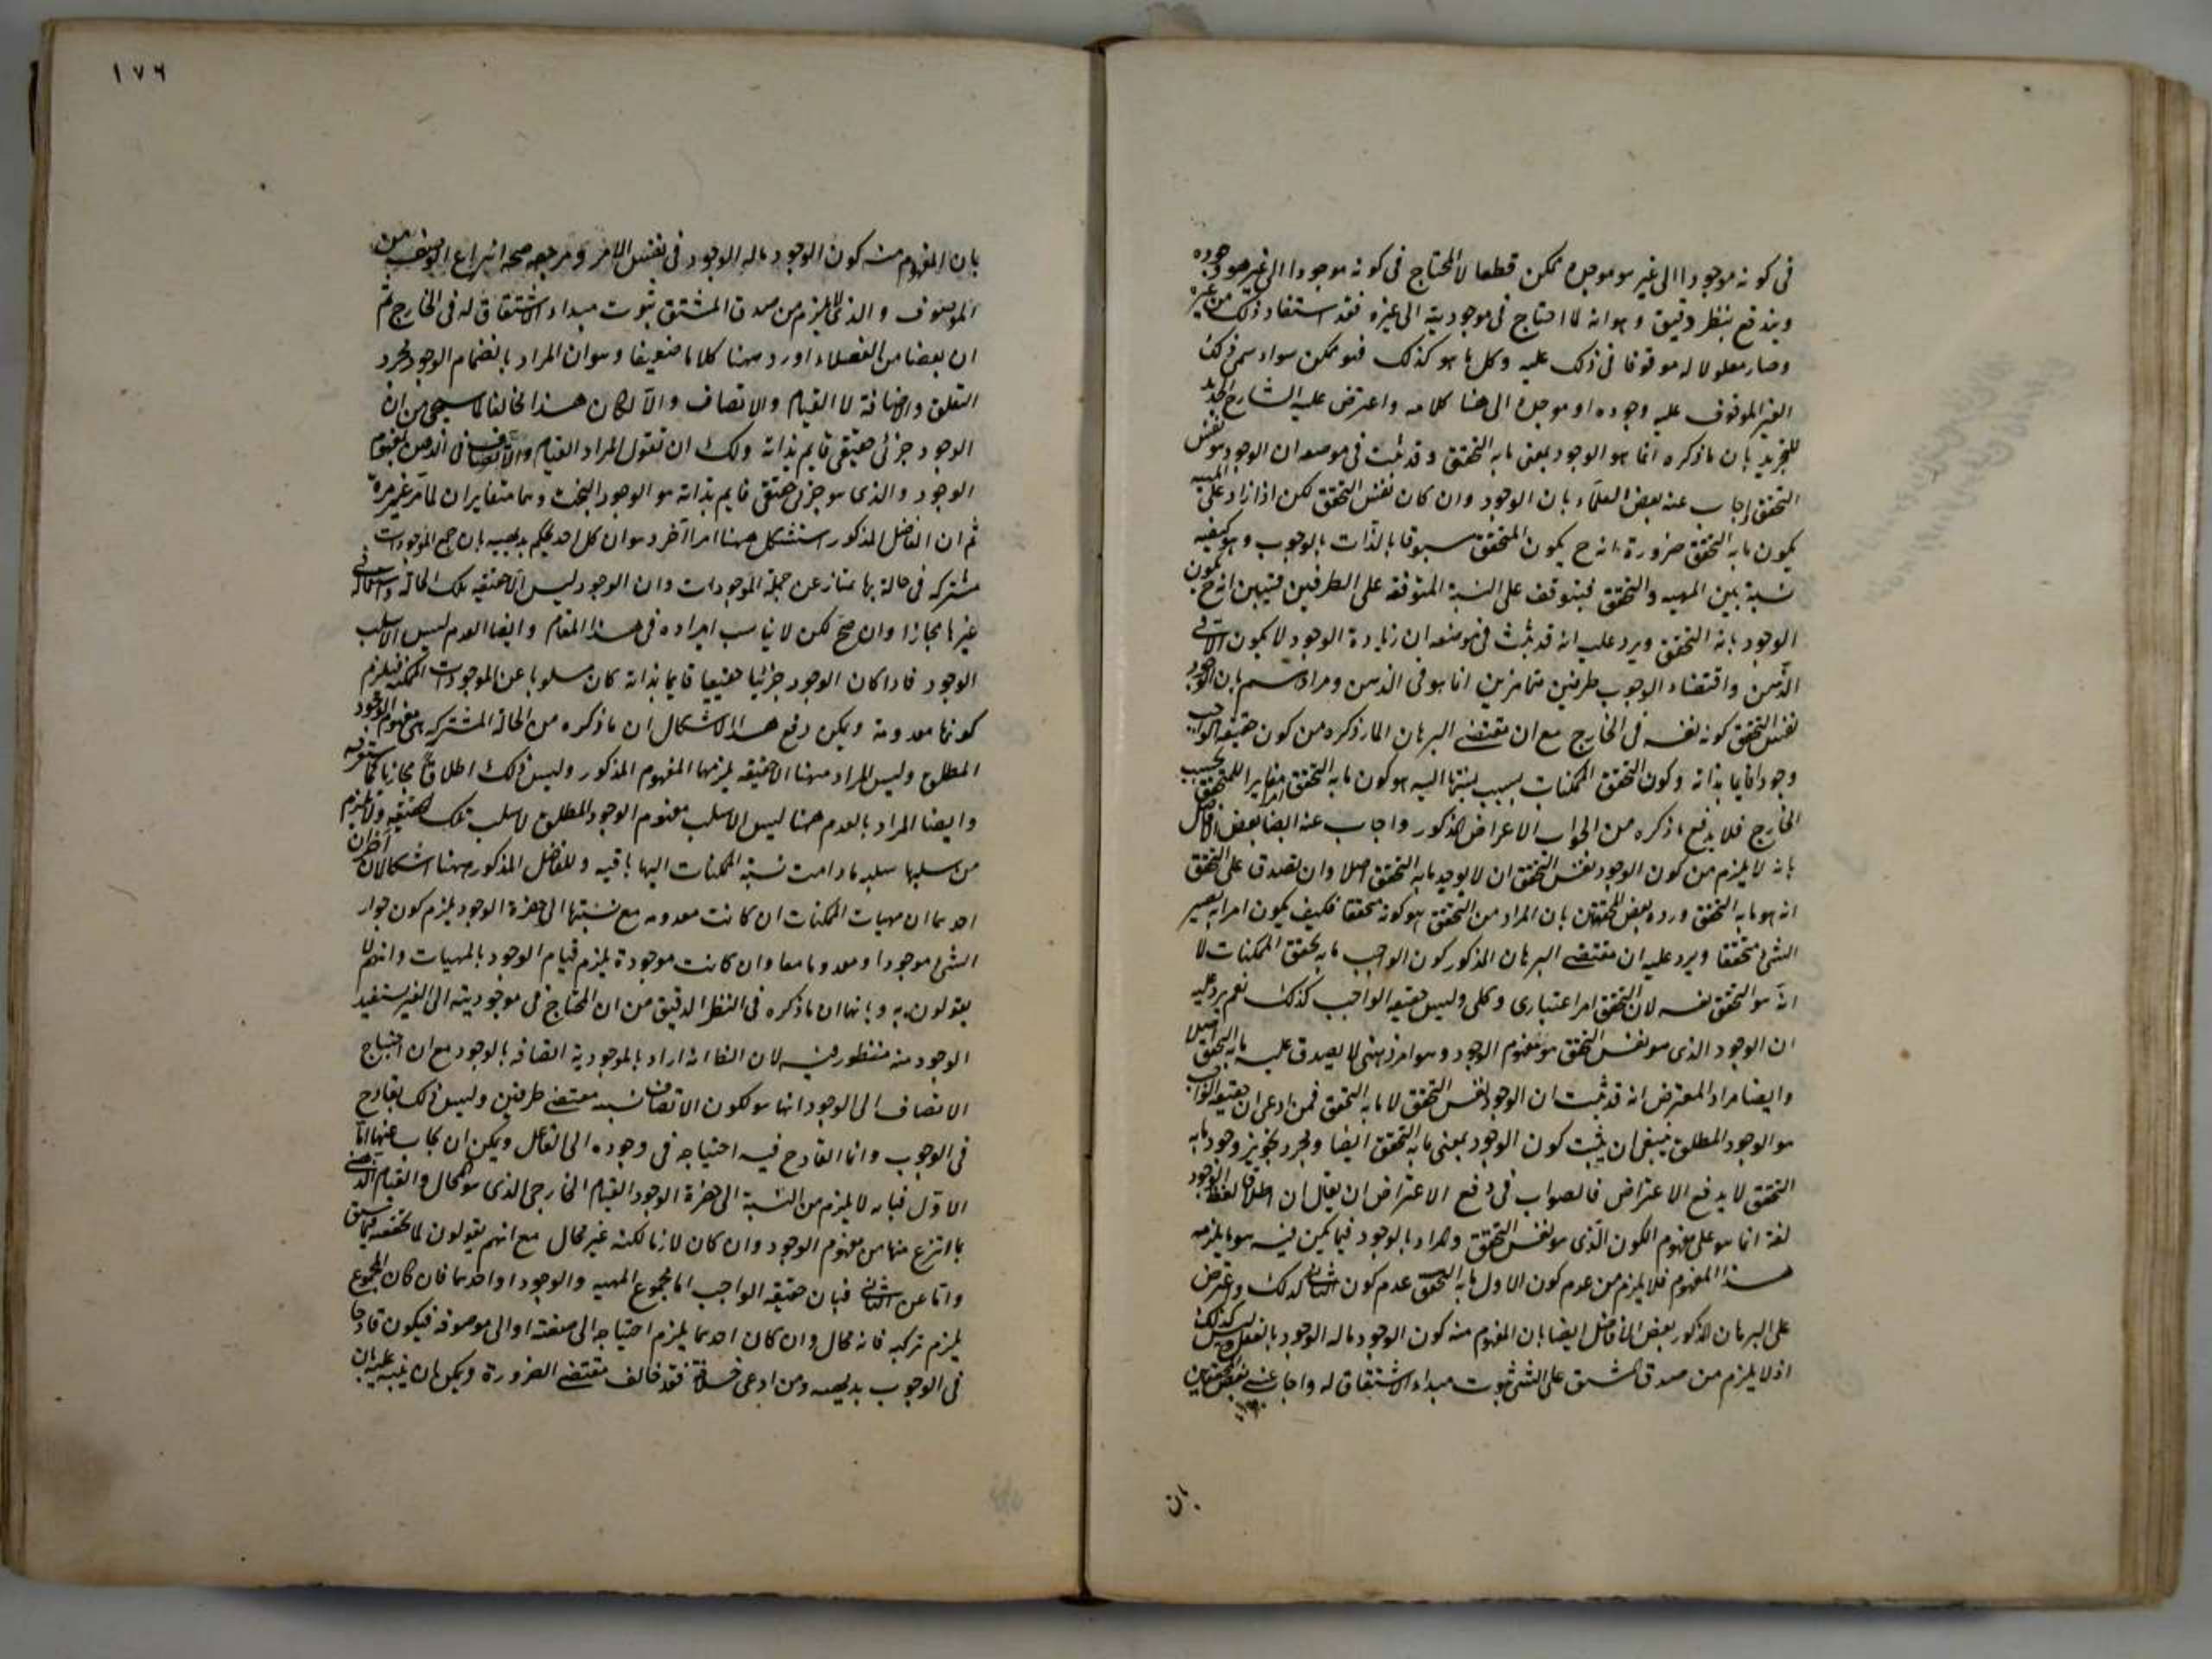 فى كونه موجودا الى غير هو موجده ممكن قطعا لا المحتاج فى كونه موجودا الى غير هو وجوده
ويندفع بنظر دقيق وهو انه لما احتاج فى موجوديته الى غيره فقد استفاد ذلك من غيره
وصار معلولا له موقوفا فى ذلك عليه وكل ما هو كذلك فهو ممكن سواء سمى ذلك
الغير الموقوف عليه وجوده او موجده الى هنا كلامه واعترض عليه الشارح الجديد
للتجريد بان ما ذكره انما هو الوجود بمعنى ما به التحقق وقد ثبت فى موضعه ان الوجود هو نفس
التحقق اجاب عنه بعض العلماء بان الوجود وان كان نفس التحقق لكن اذا زاد على المهيه
يكون ما به التحقق ضرورة انه ح يكون المتحقق مسبوقا بالذات بالوجوب وهو كيفيه
نسبة بين المهيه والتحقق فيتوقف على النسبة المتوقفه على الطرفين فتبين انه ح يكون
الوجود ما به التحقق ويرد عليه انه قد ثبت فى موضعه ان زيادة الوجود لا يكون الا فى
الذهن واقتضاء الوجوب طرفين متمايزين انما هو فى الذهن ومرادهم بان الوجود
نفس التحقق كونه نفسه فى الخارج مع ان مقتضى البرهان المار ذكره من كون حقيقه الواجب
وجودا قايما بذاته وكون التحقق الممكنات بسبب نسبتها اليه هو كون ما به التحقق مغايرا للمتحقق بحسب
الخارج فلا يدفع ما ذكره من الجواب الاعراض المذكور واجاب عنه ايضا بعض الافاضل
بانه لا يلزم من كون الوجود نفس التحقق ان لا يوجد ما به التحقق اصلا وان تصدق على التحقق
انه هو ما به التحقق ورده بعض المحققين بان المراد من التحقق هو كونه محققا فكيف يكون امرا به يصير
الشئ متحققا ويرد عليه ان مقتضى البرهان المذكور كون الواجب ما به تحقق الممكنات لا
انه هو التحقق نفسه لان التحقق امر اعتبارى وكلى وليس حقيقه الواجب كذلك نعم يرد عليه
ان الوجود الذى هو نفس التحقق هو مفهوم الوجود وهو امر ذهنى لا يصدق عليه ما به التحقق اصلا
وايضا مراد المعترض انه قد ثبت ان الوجود نفس التحقق لا ما به التحقق فمن ادعى ان حقيقه الواجب
هو الوجود المطلق ينبغى ان يثبت كون الوجود بمعنى ما به التحقق ايضا ومجرد تجويز وجود ما به
التحقق لا يدفع الاعتراض فالصواب فى دفع الاعتراض ان يقال ان اطلاق لفظ الوجود
لغة انما هو على مفهوم الكون الذى هو نفس التحقق والمراد بالوجود فيما يكون فيه هو ما يلزمه
هذا المفهوم فلا يلزم من عدم كون الاول ما به التحقق عدم كون الثانى كذلك واعترض
على البرهان المذكور بعض الافاضل ايضا بان المفهوم منه كون الوجود ما له الوجود بالفعل وليس كذلك
اذ لا يلزم من صدق المشتق على الشئ ثبوت مبداء الاشتقاق له واجاب عنه بعض المحققين
بان
١٧٦
بان المفهوم منه كون الوجود ما له الوجود فى نفس الامر ومرجعه صحه انتزاع الوصف من
الموصوف والذى لا يلزم من صدق المشتق ثبوت مبداء الاشتقاق له فى الخارج ثم
ان بعضا من الفضلاء اورد ههنا كلاما ضعيفا وهو ان المراد بانضمام الوجود مجرد
التعلق والاضافة لا القيام والاتصاف والا لكان هذا مخالفا لما سيجئ من ان
الوجود جزئى حقيقى قايم بذاته ولك ان تقول المراد القيام والاتصاف فى الذهن بمفهوم
الوجود والذى هو جزئى حقيقى قايم بذاته هو الوجود البحت وهما متغايران لما مر غير مرة
ثم ان الفاضل المذكور استشكل ههنا امرا آخر وهو ان كل احد يحكم بديهيه بان جميع الموجودات
مشتركه فى حالة بها يمتاز عن جملة الموجودات وان الوجود ليس الا حقيقه تلك الحاله واستعماله فى
غيرها مجازا وان صح لكن لا يناسب ايراده فى هذا المقام وايضا العدم ليس الا سلب
الوجود فاذا كان الوجود جزئيا حقيقيا قايما بذاته كان مسلوبا عن الموجودات الممكنه فيلزم
كونها معدومة ويمكن دفع هذا الاشكال ان ما ذكره من الحالة المشتركه هى مفهوم الوجود
المطلق وليس المراد ههنا الا حقيقه يلزمها المفهوم المذكور وليس ذلك اطلاقا مجازيا كما ستعرفه
وايضا المراد بالعدم هنا ليس الا سلب مفهوم الوجود المطلق لا سلب تلك الحقيقه ولا يلزم
من سلبها سلبه ما دامت نسبة الممكنات اليها باقيه وللفاضل المذكور ههنا اشكالان آخران
احدهما ان مهيات الممكنات ان كانت معدومه مع نسبتها الى حضرة الوجود يلزم كون جواز
الشئ موجودا ومعدوما معا وان كانت موجودة يلزم قيام الوجود بالمهيات وانتم لا
يقولون به وثانيهما ان ما ذكره فى النظر الدقيق من ان المحتاج فى موجوديته الى الغير مستفيد
الوجود منه منظور فيه لان الظ انه اراد بالموجودية اتصافه بالوجود مع ان احتياج
الاتصاف الى الوجود انما هو لكون الاتصاف نسبة مقتضى طرفين وليس ذلك بقادح
فى الوجوب وانما القادح فيه احتياجه فى وجوده الى الفاعل ويمكن ان يجاب عنهما اما
الاول فبانه لا يلزم من النسبة الى حضرة الوجود القيام الخارجى الذى هو المحال والقيام الذهنى
بما انتزع منها من مفهوم الوجود وان كان لازما لكنه غير محال مع انهم يقولون لما تحققته فيما سبق
واما عن الثانى فبان حقيقه الواجب اما مجموع المهيه والوجود او احدهما فان كان المجموع
يلزم تركبه فانه محال وان كان احدهما يلزم احتياجه الى صفته او الى موصوفه فيكون قادحا
فى الوجوب بديهيه ومن ادعى خلافه فقد خالف مقتضى الضرورة ويمكن ان ينبه عليه بان